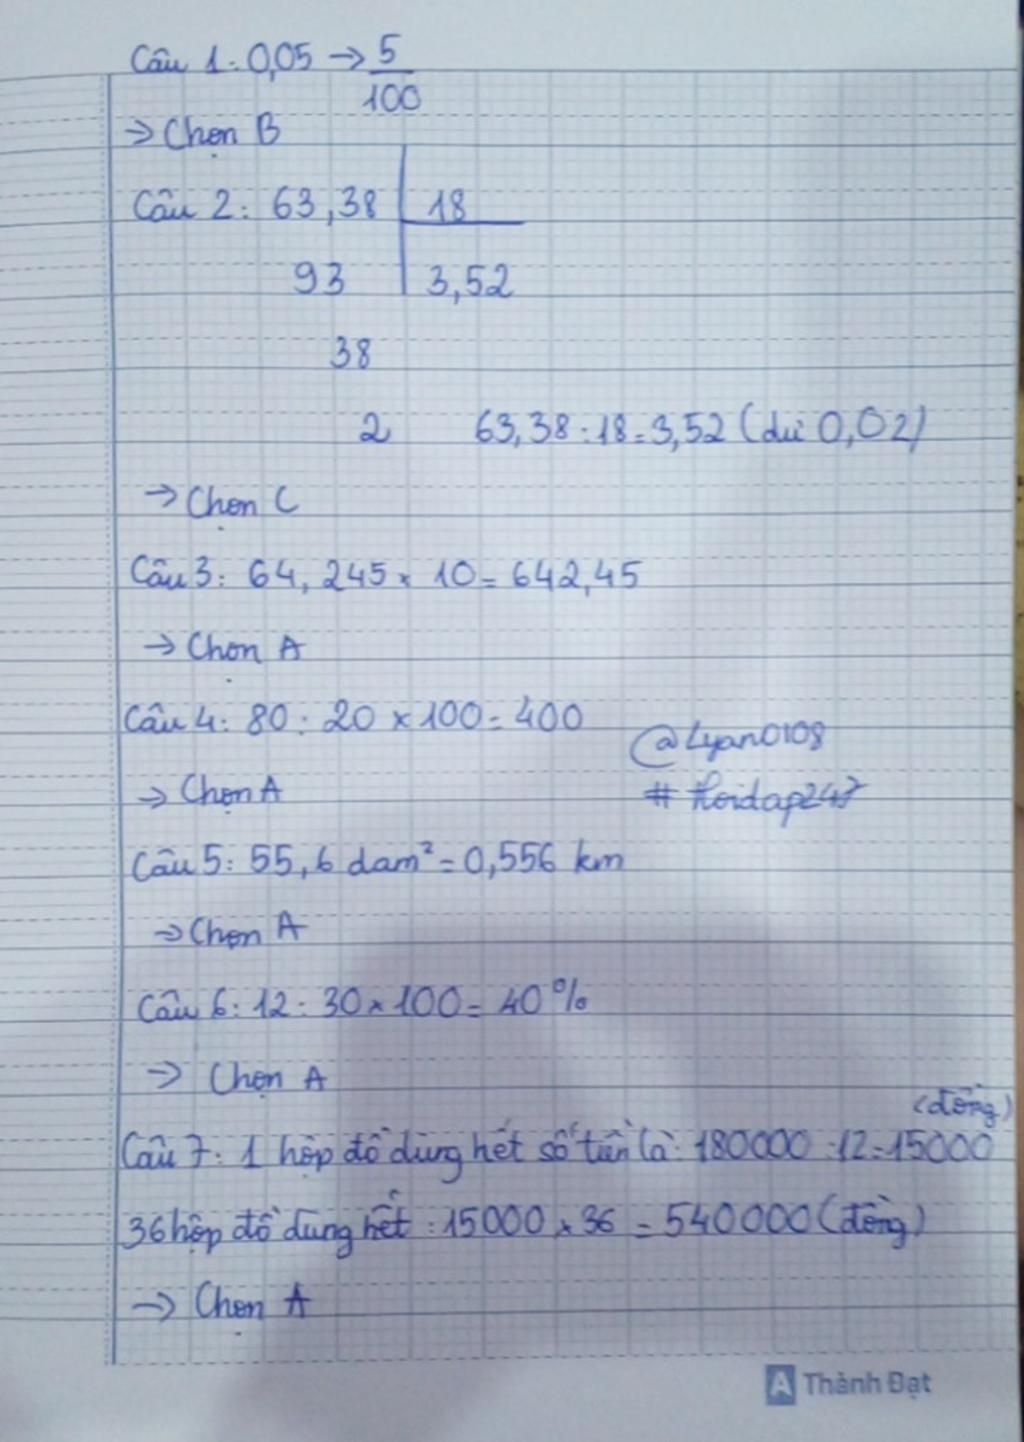 Câu 1: 0,05 → 5/100
→ Chọn B
Câu 2: 63,38 | 18
93 | 3,52
38
2 63,38 : 18 = 3,52 (dư 0,02)
→ Chọn C
Câu 3: 64,245 × 10 = 642,45
→ Chọn A
Câu 4: 80 : 20 × 100 = 400
@Lyan0108
→ Chọn A
#hoidap247
Câu 5: 55,6 dam² = 0,556 km
→ Chọn A
Câu 6: 12 : 30 × 100 = 40%
→ Chọn A
(đồng)
Câu 7: 1 hộp đồ dùng hết số tiền là: 180000 : 12 = 15000
36 hộp đồ dùng hết : 15000 × 36 = 540000 (đồng)
→ Chọn A
A Thành Đạt